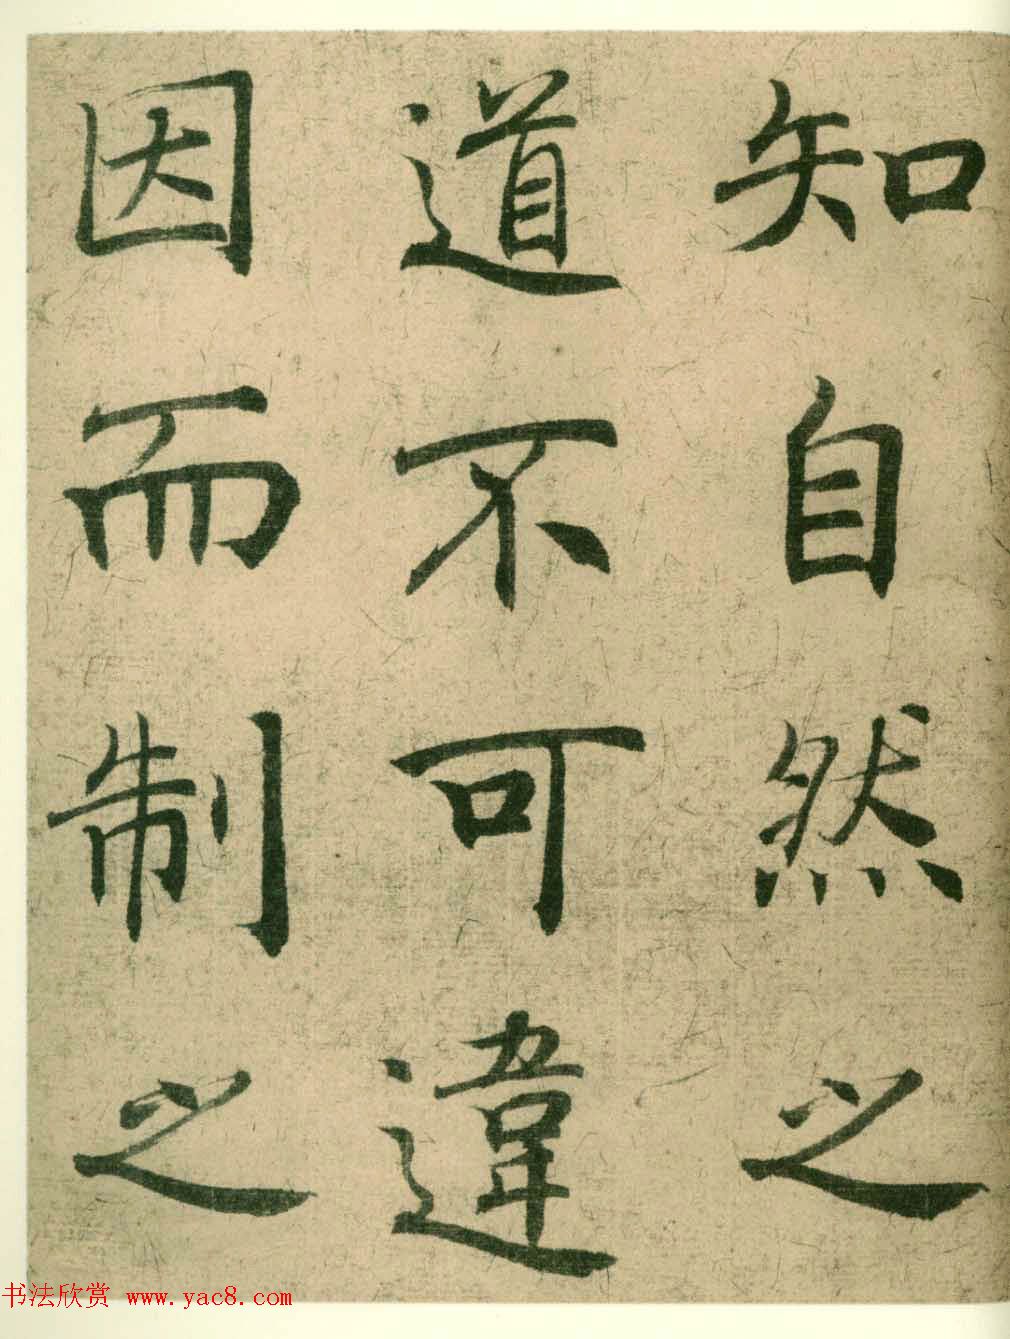 知自然之
道不可違
因而制之
书法欣赏 www.yac8.com